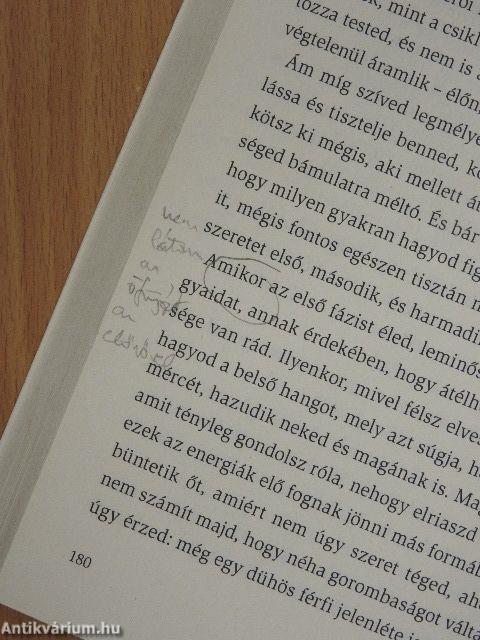 ek, mint a csikl
tozza tested, és nem is a
végtelenül áramlik – élőn
Ám míg szíved legmélye
lássa és tisztelje benned, kö
kötsz ki mégis, aki mellett át
séged bámulatra méltó. És bár
hogy milyen gyakran hagyod fig
it, mégis fontos egészen tisztán n
szeretet első, második, és harmadi
Amikor az első fázist éled, leminős
gyaidat, annak érdekében, hogy átélhe
sége van rád. Ilyenkor, mivel félsz elves
hagyod a belső hangot, mely azt súgja, ha
mércét, hazudik neked és magának is. Mag
amit tényleg gondolsz róla, nehogy elriaszd
ezek az energiák elő fognak jönni más formáb
büntetik őt, amiért nem úgy szeret téged, aho
nem számít majd, hogy néha gorombaságot válta
úgy érzed: még egy dühös férfi jelenléte is
180
nem
látom
az
az
Antikvárium.hu